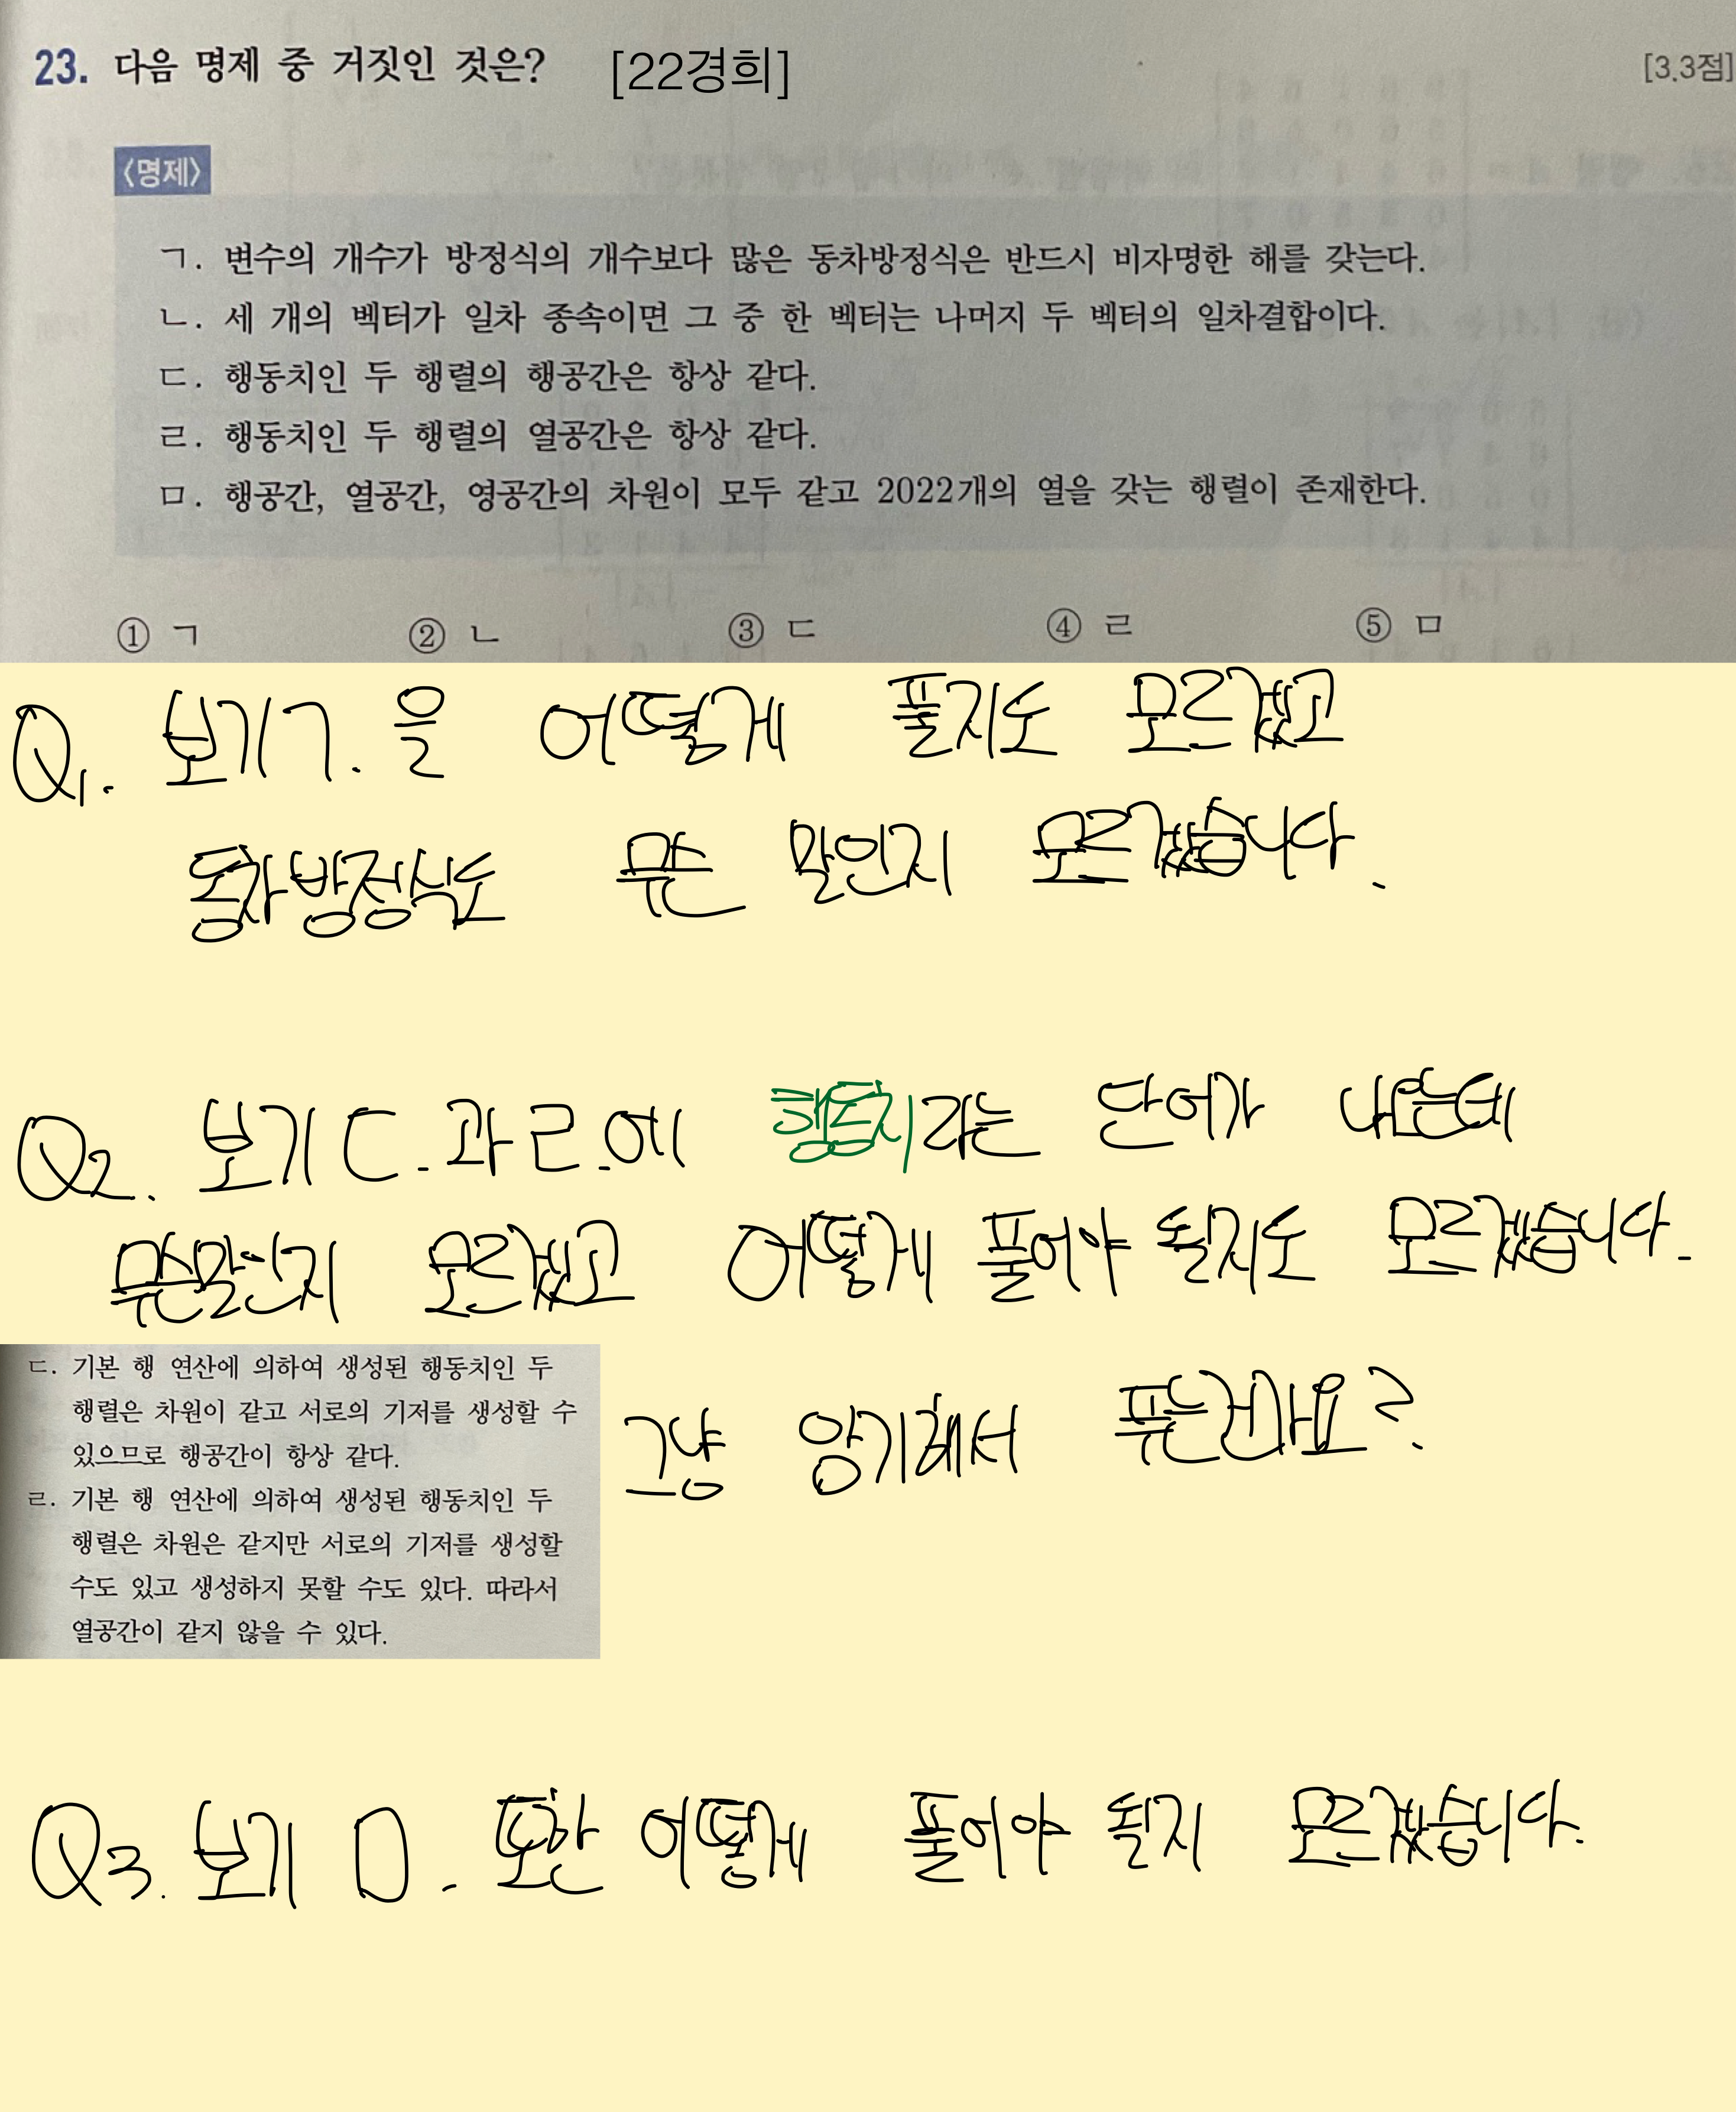 23. 다음 명제 중 거짓인 것은? [22경희] [3.3점]
<명제>
ㄱ. 변수의 개수가 방정식의 개수보다 많은 동차방정식은 반드시 비자명한 해를 갖는다.
ㄴ. 세 개의 벡터가 일차 종속이면 그 중 한 벡터는 나머지 두 벡터의 일차결합이다.
ㄷ. 행동치인 두 행렬의 행공간은 항상 같다.
ㄹ. 행동치인 두 행렬의 열공간은 항상 같다.
ㅁ. 행공간, 열공간, 영공간의 차원이 모두 같고 2022개의 열을 갖는 행렬이 존재한다.
① ㄱ ② ㄴ ③ ㄷ ④ ㄹ ⑤ ㅁ
Q1. 보기 ㄱ. 을 어떻게 풀지도 모르겠고
동차방정식도 무슨 말인지 모르겠습니다.
Q2. 보기 ㄷ. 과 ㄹ. 에 행동치라는 단어가 나오는데
무슨말인지 모르겠고 어떻게 풀어야 될지도 모르겠습니다.
ㄷ. 기본 행 연산에 의하여 생성된 행동치인 두
행렬은 차원이 같고 서로의 기저를 생성할 수
있으므로 행공간이 항상 같다.
ㄹ. 기본 행 연산에 의하여 생성된 행동치인 두
행렬은 차원은 같지만 서로의 기저를 생성할
수도 있고 생성하지 못할 수도 있다. 따라서
열공간이 같지 않을 수 있다.
그냥 암기해서 푸는건가요?
Q3. 보기 ㅁ. 또한 어떻게 풀어야 될지 모르겠습니다.